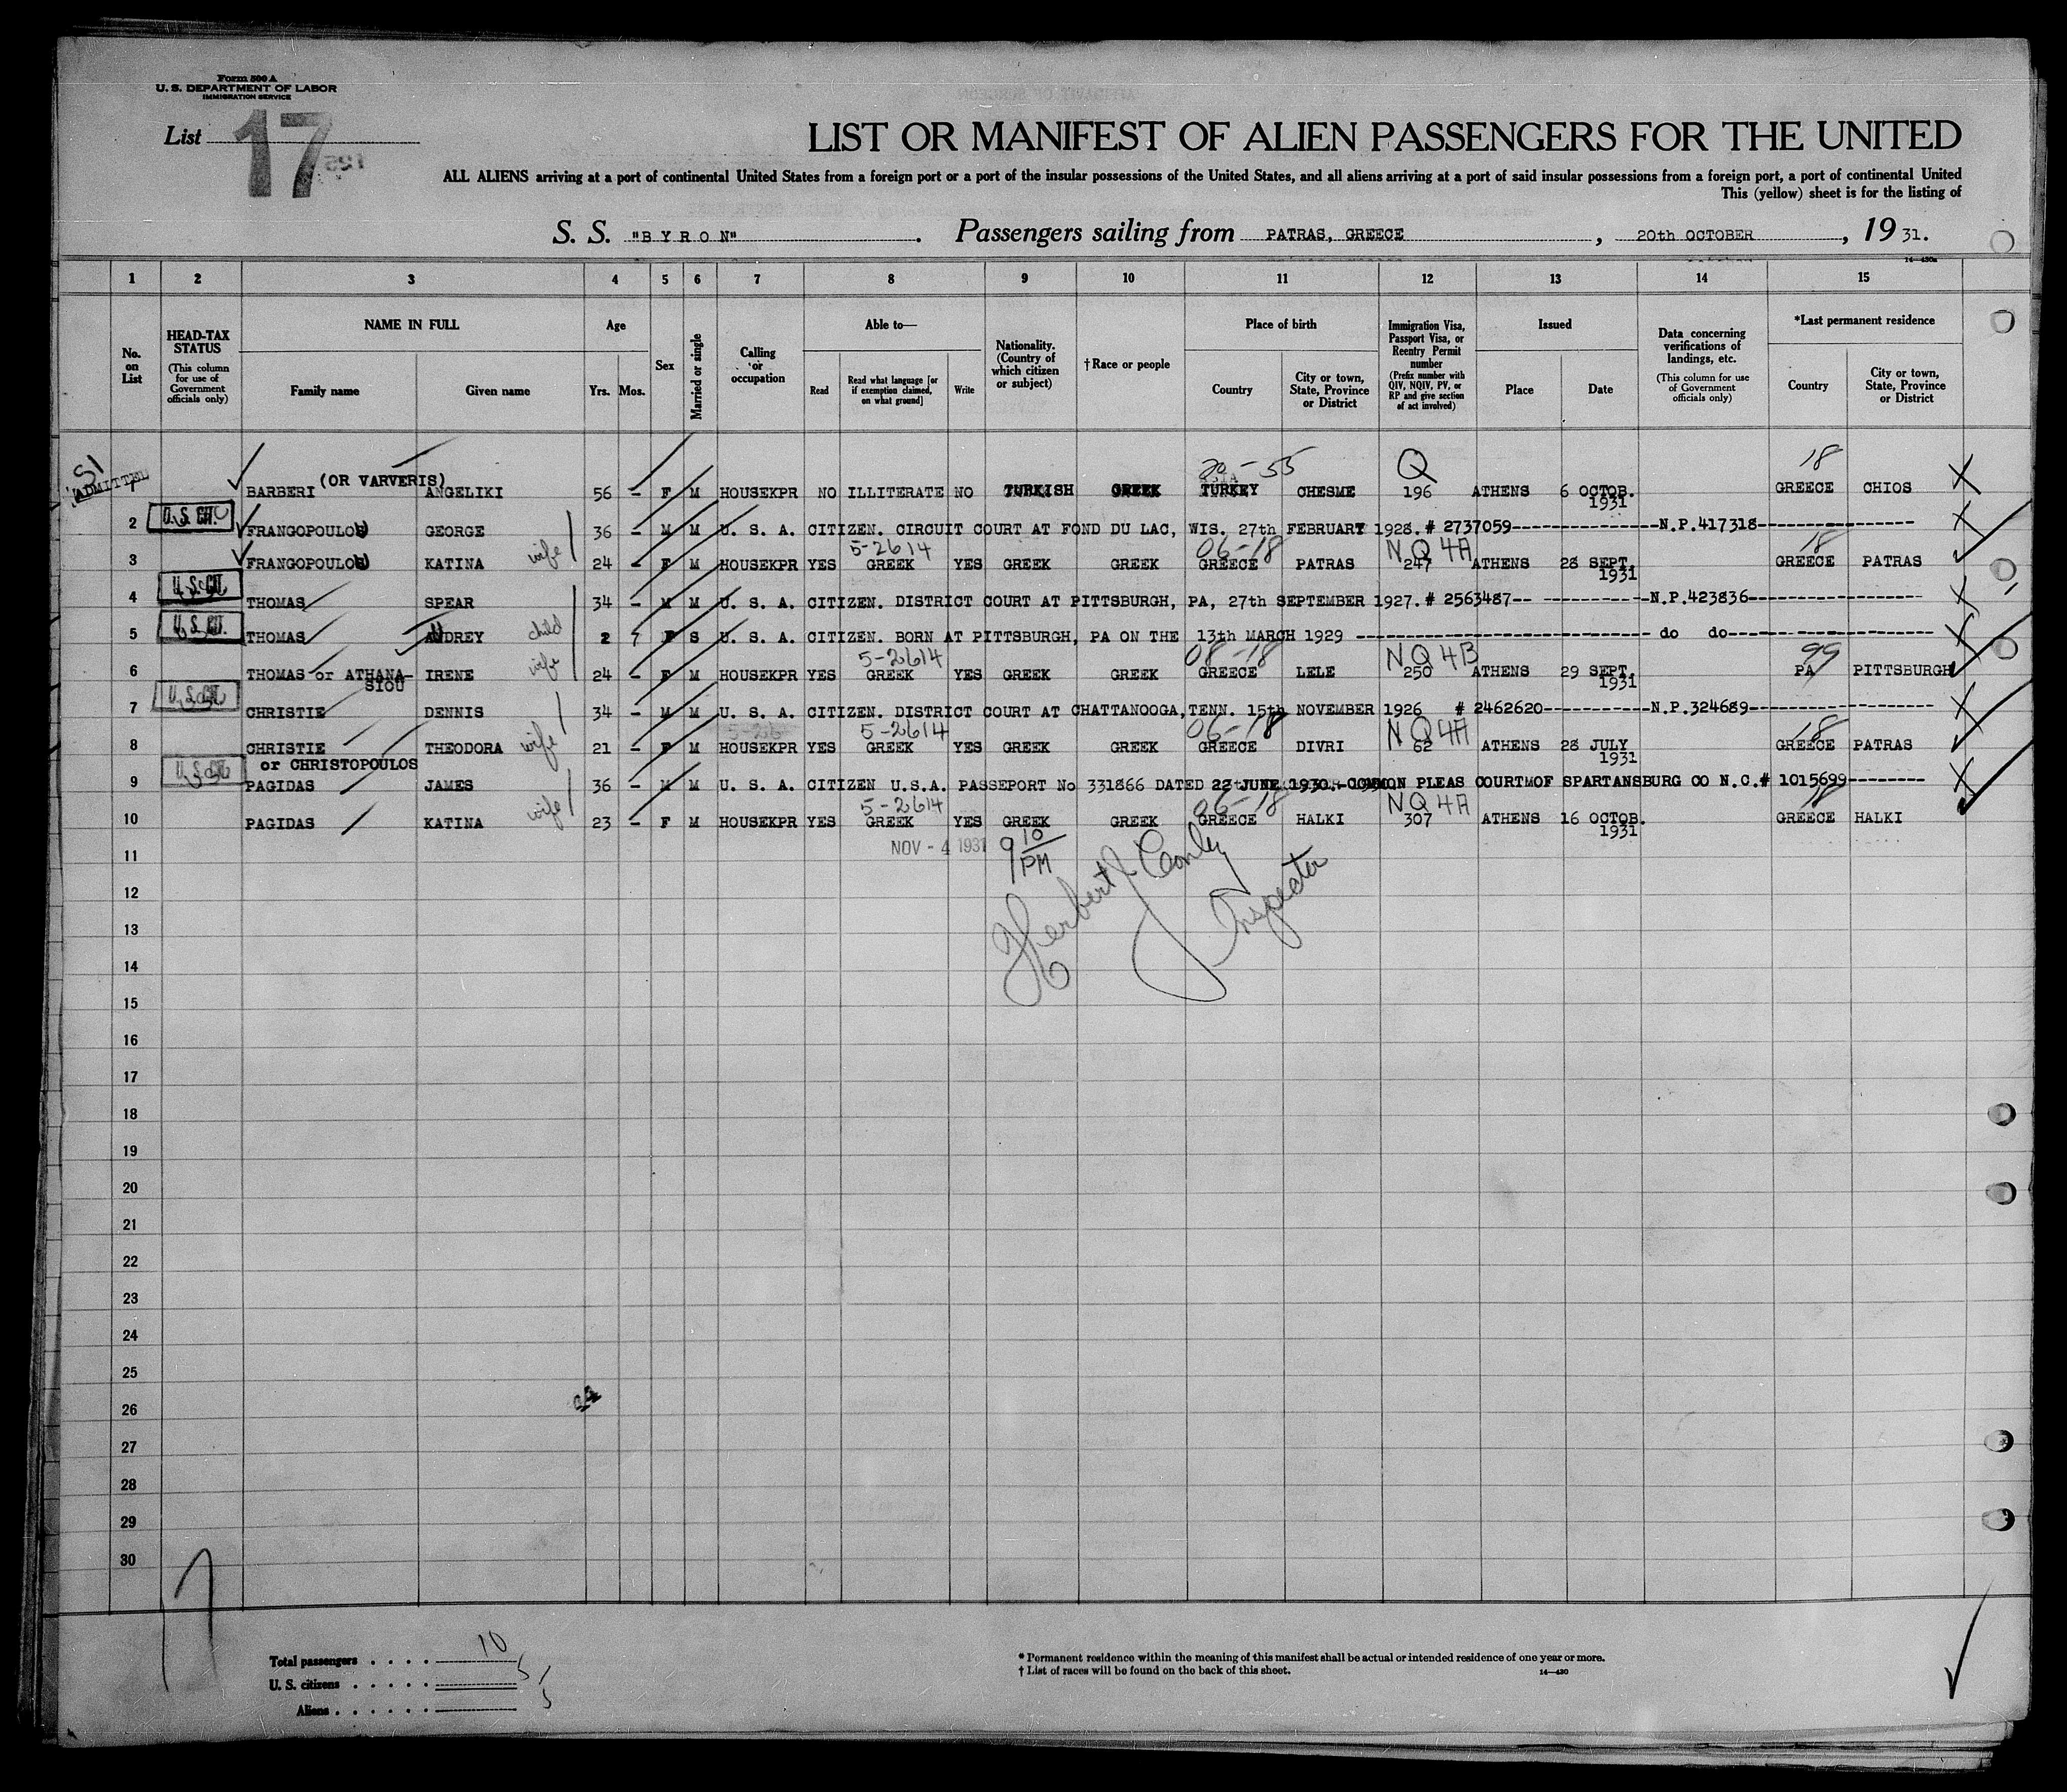 Form 500 A
U. S. DEPARTMENT OF LABOR
IMMIGRATION SERVICE
List 17
LIST OR MANIFEST OF ALIEN PASSENGERS FOR THE UNITED
ALL ALIENS arriving at a port of continental United States from a foreign port or a port of the insular possessions of the United States, and all aliens arriving at a port of said insular possessions from a foreign port, a port of continental United
This (yellow) sheet is for the listing of
S. S. "BYRON". Passengers sailing from PATRAS, GREECE, 20th OCTOBER, 1931.
14-430a
1 2 3 4 5 6 7 8 9 10 11 12 13 14 15
No. on List
HEAD-TAX STATUS (This column for use of Government officials only)
NAME IN FULL Family name Given name
Age Yrs. Mos.
Sex
Married or single
Calling or occupation
Able to— Read Read what language [or if exemption claimed, on what ground] Write
Nationality. (Country of which citizen or subject)
† Race or people
Place of birth Country City or town, State, Province or District
Immigration Visa, Passport Visa, or Reentry Permit number (Prefix number with QIV, NQIV, PV, or RP and give section of act involved)
Issued Place Date
Data concerning verifications of landings, etc. (This column for use of Government officials only)
*Last permanent residence Country City or town, State, Province or District
SI ADMITTED
20-55 Q 18
(OR VARVERIS)
1 BARBERI ANGELIKI 56 - F M HOUSEKPR NO ILLITERATE NO TURKISH GREEK TURKEY CHESME 196 ATHENS 6 OCTOB. 1931 GREECE CHIOS
2 U.S. CIT. FRANGOPOULOU GEORGE 36 - M M U. S. A. CITIZEN. CIRCUIT COURT AT FOND DU LAC, WIS. 27th FEBRUARY 1928. # 2737059---N.P.417318---
wife 5-2614 06-18 NQ 4A 18
3 FRANGOPOULOU KATINA 24 - F M HOUSEKPR YES GREEK YES GREEK GREEK GREECE PATRAS 247 ATHENS 28 SEPT. 1931 GREECE PATRAS
4 U.S. CIT. THOMAS SPEAR 34 - M M U. S. A. CITIZEN. DISTRICT COURT AT PITTSBURGH, PA, 27th SEPTEMBER 1927. # 2563487-- ---N.P.423836---
5 U.S. CIT. THOMAS AUDREY child 2 7 F S U. S. A. CITIZEN. BORN AT PITTSBURGH, PA ON THE 13th MARCH 1929 --- do do---
wife 5-2614 08-18 NQ 4B 99
6 THOMAS or ATHANASIOU IRENE 24 - F M HOUSEKPR YES GREEK YES GREEK GREEK GREECE LELE 250 ATHENS 29 SEPT. 1931 PA PITTSBURGH
7 U.S. CIT. CHRISTIE DENNIS 34 - M M U. S. A. CITIZEN. DISTRICT COURT AT CHATTANOOGA, TENN. 15th NOVEMBER 1926 # 2462620---N.P.324689---
wife 5-26 5-2614 06-18 NQ 4A 18
8 CHRISTIE THEODORA 21 - F M HOUSEKPR YES GREEK YES GREEK GREEK GREECE DIVRI 62 ATHENS 28 JULY 1931 GREECE PATRAS
or CHRISTOPOULOS
9 U.S. CIT. PAGIDAS JAMES 36 - M M U. S. A. CITIZEN U.S.A. PASSEPORT No 331866 DATED 22 JUNE 1930.-COMMON PLEAS COURTMOF SPARTANSBURG CO N.C.# 1015699---
wife 5-2614 06-18 NQ 4A 18
10 PAGIDAS KATINA 23 - F M HOUSEKPR YES GREEK YES GREEK GREEK GREECE HALKI 307 ATHENS 16 OCTOB. 1931 GREECE HALKI
NOV - 4 1931 9 10 PM
11
12 Herbert J Conley
13 Inspector
14
15
16
17
18
19
20
21
22
23
24
25
26
27
28
29
30
Total passengers . . . . 10
U. S. citizens . . . . . 5
Aliens . . . . . 5
* Permanent residence within the meaning of this manifest shall be actual or intended residence of one year or more.
† List of races will be found on the back of this sheet. 14-430